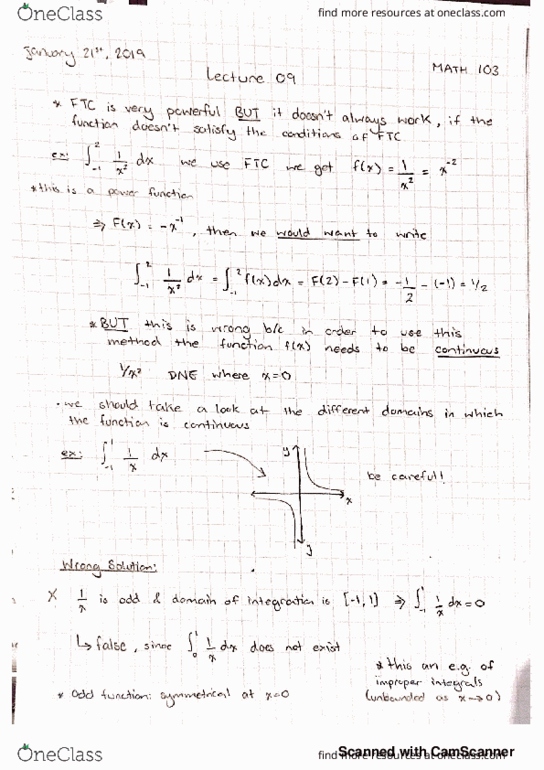 OneClass
find more resources at oneclass.com
January 21st, 2019
MATH 103
Lecture 09
* FTC is very powerful BUT it doesn't always work, if the
function doesn't satisfy the conditions of FTC
ex: ∫₋₁² 1/x² dx we use FTC we get f(x) = 1/x² = x⁻²
*this is a power function
⇒ F(x) = -x⁻¹, then we would want to write
∫₋₁² 1/x² dx = ∫₋₁² f(x)dx = F(2) - F(1) = -1/2 - (-1) = 1/2
*BUT this is wrong b/c in order to use this
method the function f(x) needs to be continuous
1/x² DNE where x=0
• we should take a look at the different domains in which
the function is continuous
ex: ∫₋₁¹ 1/x dx
y
be careful!
x
y
Wrong Solution:
X 1/x is odd & domain of integration is [-1,1] ⇒ ∫₋₁¹ 1/x dx = 0
↳ false, since ∫₀¹ 1/x dx does not exist
* this an e.g. of
improper integrals
(unbounded as x→0)
* Odd function: symmetrical at x=0
OneClass
find more resources at oneclass.com
Scanned with CamScanner